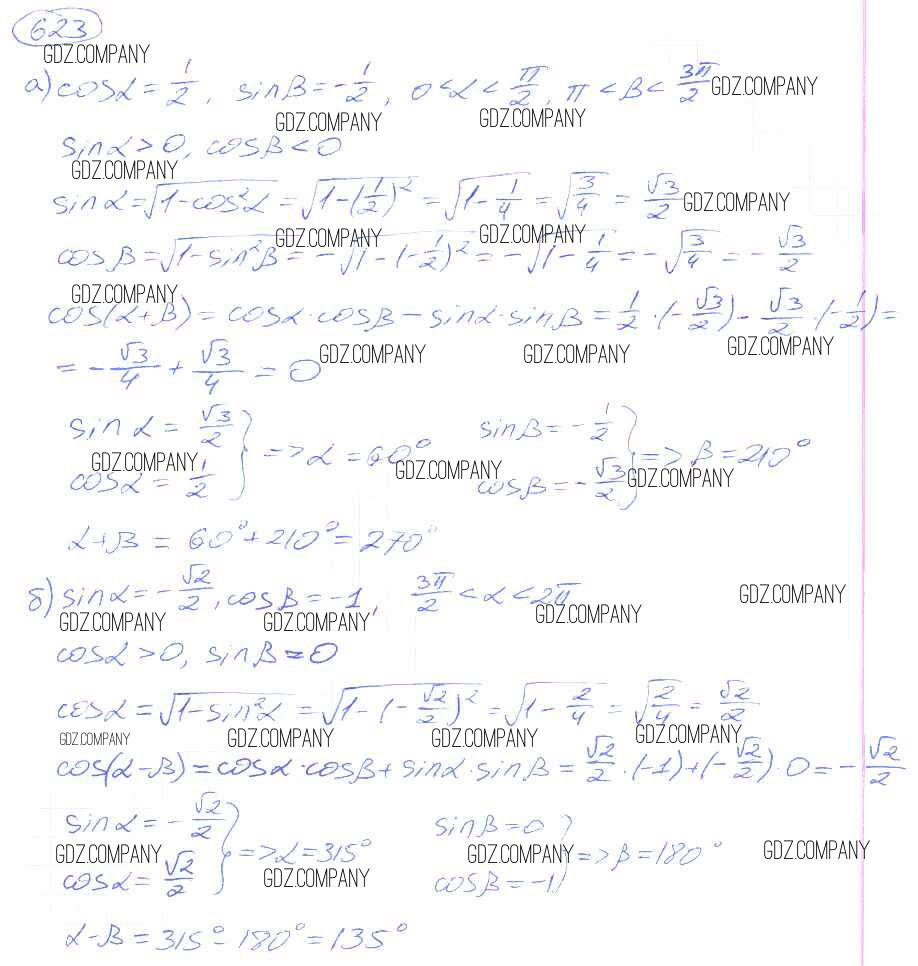 623
GDZ.COMPANY
а) cosα = 1/2, sinβ = -1/2, 0 < α < π/2, π < β < 3π/2 GDZ.COMPANY
GDZ.COMPANY GDZ.COMPANY
sinα > 0, cosβ < 0
GDZ.COMPANY
sinα = √(1-cos²α) = √(1-(1/2)²) = √(1-1/4) = √(3/4) = √3/2 GDZ.COMPANY
GDZ.COMPANY GDZ.COMPANY
cosβ = √(1-sin²β) = -√(1-(-1/2)²) = -√(1-1/4) = -√(3/4) = -√3/2
GDZ.COMPANY
cos(α+β) = cosα·cosβ - sinα·sinβ = 1/2·(-√3/2) - √3/2·(-1/2) =
GDZ.COMPANY GDZ.COMPANY GDZ.COMPANY
= -√3/4 + √3/4 = 0
sinα = √3/2 sinβ = -1/2
} => α = 60° } => β = 210°
GDZ.COMPANY GDZ.COMPANY GDZ.COMPANY
cosα = 1/2 cosβ = -√3/2
α+β = 60° + 210° = 270°
б) sinα = -√2/2, cosβ = -1, 3π/2 < α < 2π GDZ.COMPANY
GDZ.COMPANY GDZ.COMPANY GDZ.COMPANY
cosα > 0, sinβ = 0
cosα = √(1-sin²α) = √(1-(-√2/2)²) = √(1-2/4) = √(2/4) = √2/2
GDZ.COMPANY GDZ.COMPANY GDZ.COMPANY GDZ.COMPANY
cos(α-β) = cosα·cosβ + sinα·sinβ = √2/2·(-1) + (-√2/2)·0 = -√2/2
sinα = -√2/2 sinβ = 0
GDZ.COMPANY } => α = 315° GDZ.COMPANY } => β = 180° GDZ.COMPANY
cosα = √2/2 GDZ.COMPANY cosβ = -1
α-β = 315° - 180° = 135°